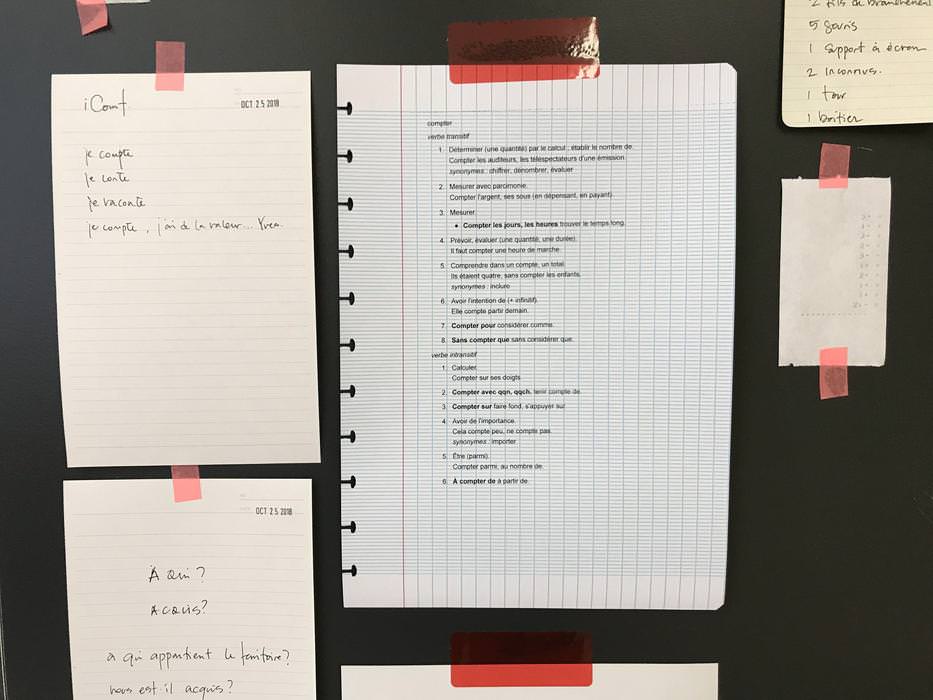 iCompt
OCT 25 2018
je compte
je conte
je raconte
je compte, j'ai de la valeur... Yves.
OCT 25 2018
À qui ?
Acquis?
à qui appartient le territoire?
nous est il acquis?
compter
verbe transitif
1. Déterminer (une quantité) par le calcul ; établir le nombre de.
Compter les auditeurs, les téléspectateurs d'une émission.
synonymes : chiffrer, dénombrer, évaluer
2. Mesurer avec parcimonie.
Compter l'argent, ses sous (en dépensant, en payant).
3. Mesurer.
• Compter les jours, les heures trouver le temps long.
4. Prévoir, évaluer (une quantité, une durée).
Il faut compter une heure de marche.
5. Comprendre dans un compte, un total.
Ils étaient quatre, sans compter les enfants.
synonymes : inclure
6. Avoir l'intention de (+ infinitif).
Elle compte partir demain.
7. Compter pour considérer comme.
8. Sans compter que sans considérer que.
verbe intransitif
1. Calculer.
Compter sur ses doigts.
2. Compter avec qqn, qqch. tenir compte de.
3. Compter sur faire fond, s'appuyer sur
4. Avoir de l'importance.
Cela compte peu, ne compte pas.
synonymes : importer
5. Être (parmi).
Compter parmi, au nombre de.
6. À compter de à partir de.
2 fils de branchement
5 souris
1 support à écran
2 inconnus.
1 tour
1 boîtier